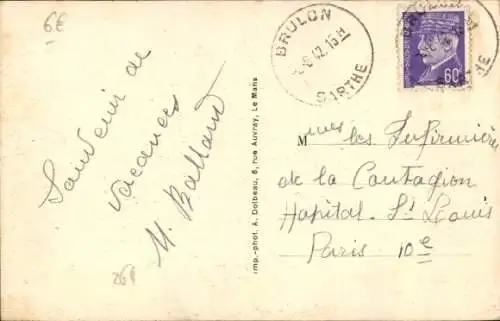 6€
Souvenir de
vacances
M. Balland
26€
Imp.-phot. A. Dolbeau, 6, rue Auvray, Le Mans
BRULON
42. 15 H
SARTHE
60c
Mmes les Infirmières
de la Contagion
Hopital St Louis
Paris 10e